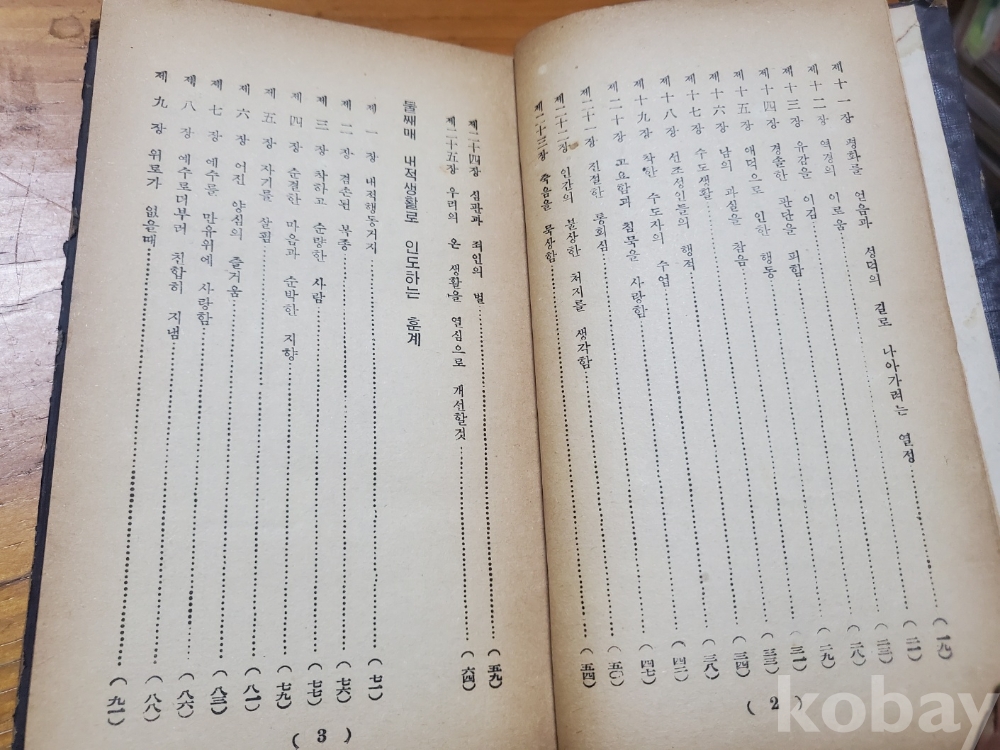 제十一장 평화를 얻음과 성덕의 길로 나아가려는 열정 (一九)
제十二장 역경의 이로움 (二一)
제十三장 유감을 이김 (二三)
제十四장 경솔한 판단을 피함 (二八)
제十五장 애덕으로 인한 행동 (二九)
제十六장 남의 과실을 참음 (三一)
제十七장 수도생활 (三三)
제十八장 선조성인들의 행적 (三四)
제十九장 착한 수도자의 수업 (三八)
제二十장 고요함과 침묵을 사랑함 (四二)
제二十一장 진절한 통회심 (四七)
제二十二장 인간의 불상한 처지를 생각함 (五〇)
제二十三장 죽음을 묵상함 (五四)
( 2 )
제二十四장 심판과 죄인의 벌 (五九)
제二十五장 우리의 온 생활을 열심으로 개선할것 (六四)
둘째매 내적생활로 인도하는 훈계
제 一 장 내적행동거지 (七一)
제 二 장 겸손된 복종 (七六)
제 三 장 착하고 순량한 사람 (七七)
제 四 장 순결한 마음과 순박한 지향 (七九)
제 五 장 자기를 살핌 (八一)
제 六 장 어진 양심의 즐거움 (八三)
제 七 장 예수를 만유위에 사랑함 (八六)
제 八 장 예수로더부러 친합히 지냄 (八八)
제 九 장 위로가 없을때 (九一)
( 3 )
kobay